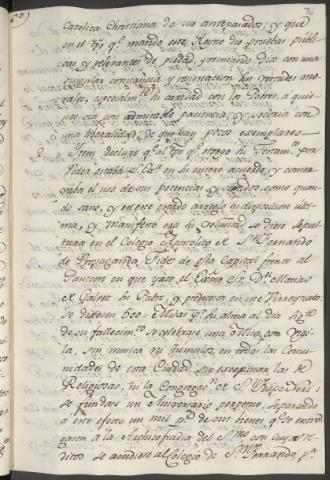 70
Catolica Christiana de sus antepasados; y que
en el tpo. qe. mandó este Reyno dio pruebas publi-
cas y relevantes de piedad, premiando Dios con una
singular constancia y resignacion sus virtudes mo-
rales, especialmte. su caridad con los Pobres, a quie-
nes oía con admirable paciencia, y socorria con
una liberalidad, de que hay pocos exemplares.
Item declaro qe. al tpo. qe. otorgó su Testamto. por
Poder estaba S. Exa. en su entero acuerdo, y conser-
vaba el uso de sus potencias y sentidos como quan-
do sano, y en este estado arregló su disposicion ulti-
ma, y manifestó era su voluntad se diese sepul-
tura en el Colegio Apostolico de Sn. Fernando
de Propaganda Fide de esta Capital frente al
Panteon en que yace el Exmo. Sr. Dn. Matias
de Galvez su Padre, y Predecesor en este Virreynato:
se dixesen Misas pr. su alma al dia
de su fallecimto. se celebrase una Misa con Vigi-
lia, sin musica ni tumulos, en todas las Comu-
nidades de esta Ciudad, sin exceptuar las de
Religiosas, ni la Congregacn. de Sn. Felipe Neri:
se fundase un Aniversario perpetuo, separando
a este efecto un mil ps. de sus bienes qe. se entre-
gasen á la Archicofradia del Smo. con cuyos re-
ditos se acudiese al Colegio de Sn. Fernando pa.